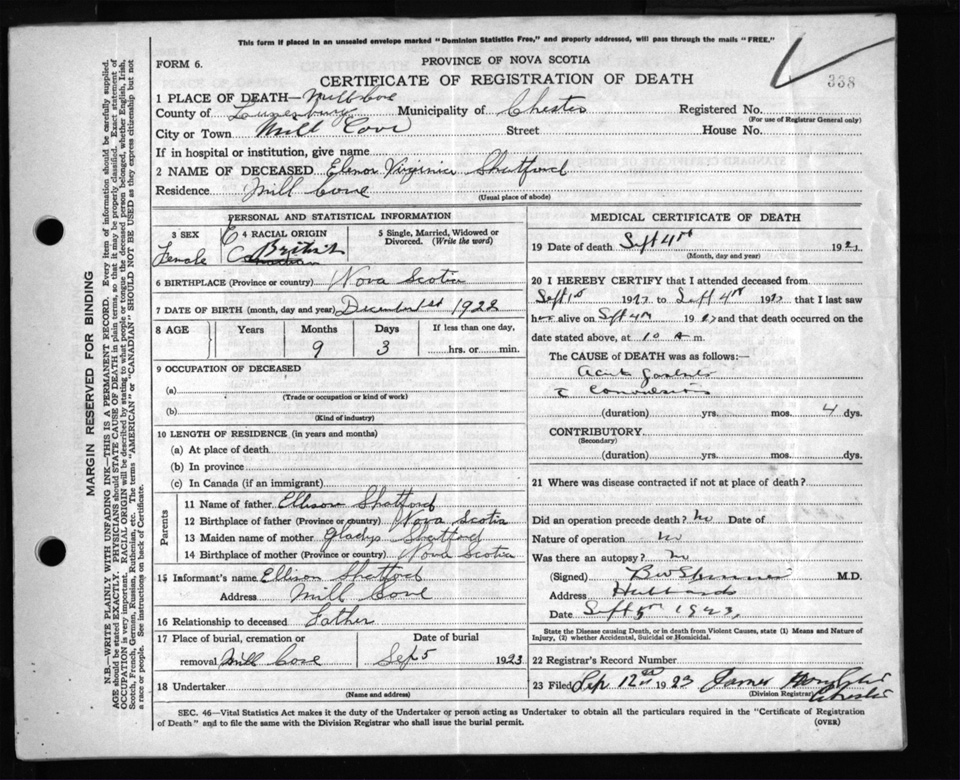 This form if placed in an unsealed envelope marked "Dominion Statistics Free," and properly addressed, will pass through the mails "FREE."
FORM 6.
PROVINCE OF NOVA SCOTIA
338
CERTIFICATE OF REGISTRATION OF DEATH
1 PLACE OF DEATH— Mill Cove
County of Lunenburg Municipality of Chester Registered No.
(For use of Registrar General only)
City or Town Mill Cove Street House No.
If in hospital or institution, give name
2 NAME OF DECEASED Elenor Virginia Shatford
Residence Mill Cove
(Usual place of abode)
PERSONAL AND STATISTICAL INFORMATION
3 SEX
Female
4 RACIAL ORIGIN
British
Canadian
5 Single, Married, Widowed or Divorced. (Write the word)
6 BIRTHPLACE (Province or country) Nova Scotia
7 DATE OF BIRTH (month, day and year) December 1st 1922
8 AGE Years Months Days If less than one day,
9 3 hrs. or min.
9 OCCUPATION OF DECEASED
(a)
(Trade or occupation or kind of work)
(b)
(Kind of industry)
10 LENGTH OF RESIDENCE (in years and months)
(a) At place of death
(b) In province
(c) In Canada (if an immigrant)
Parents
11 Name of father Ellison Shatford
12 Birthplace of father (Province or country) Nova Scotia
13 Maiden name of mother Gladys Shatford
14 Birthplace of mother (Province or country) Nova Scotia
15 Informant's name Ellison Shatford
Address Mill Cove
16 Relationship to deceased Father
17 Place of burial, cremation or Date of burial
removal Mill Cove Sep 5 1923
18 Undertaker
(Name and address)
MEDICAL CERTIFICATE OF DEATH
19 Date of death Sept 4th 192
(Month, day and year)
20 I HEREBY CERTIFY that I attended deceased from
Sept 1st 192 to Sept 4th 192 that I last saw
her alive on Sept 4th 192 and that death occurred on the
date stated above, at 10 a m.
The CAUSE of DEATH was as follows:—
Acute
c Convulsions
(duration) yrs. mos. 4 dys.
CONTRIBUTORY
(Secondary)
(duration) yrs. mos. dys.
21 Where was disease contracted if not at place of death?
Did an operation precede death? No Date of
Nature of operation no
Was there an autopsy? No
(Signed) M.D.
Address Hubbards
Date Sept 5th 1923
State the Disease causing Death, or in death from Violent Causes, state (1) Means and Nature of Injury, (2) whether Accidental, Suicidal or Homicidal.
22 Registrar's Record Number
23 Filed Sep 12th 1923 James
(Division Registrar)
Chester
SEC. 46—Vital Statistics Act makes it the duty of the Undertaker or person acting as Undertaker to obtain all the particulars required in the "Certificate of Registration
of Death" and to file the same with the Division Registrar who shall issue the burial permit.
(OVER)
MARGIN RESERVED FOR BINDING
N.B.—WRITE PLAINLY WITH UNFADING INK—THIS IS A PERMANENT RECORD. Every item of information should be carefully supplied.
AGE should be stated EXACTLY. PHYSICIANS should STATE CAUSE OF DEATH in plain terms, so that it may be properly classified. Exact statement of
OCCUPATION is very important. RACIAL ORIGIN will be described by stating to what people or tongue the deceased person belonged, whether English, Irish,
Scotch, French, German, Russian, Ruthenian, etc. The terms "AMERICAN" or "CANADIAN" SHOULD NOT BE USED as they express citizenship but not
a race or people. See instructions on back of Certificate.